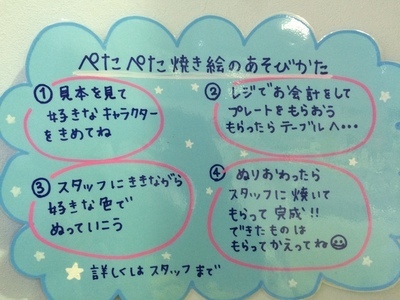 ぺたぺた焼き絵のあそびかた
① 見本を見て
好きなキャラクター
をきめてね
② レジでお会計をして
プレートをもらおう
もらったらテーブルへ・・・
③ スタッフにききながら
好きな色で
ぬっていこう
④ ぬりおわったら
スタッフに焼いて
もらって完成!!
できたものは
もらってかえってね
詳しくはスタッフまで